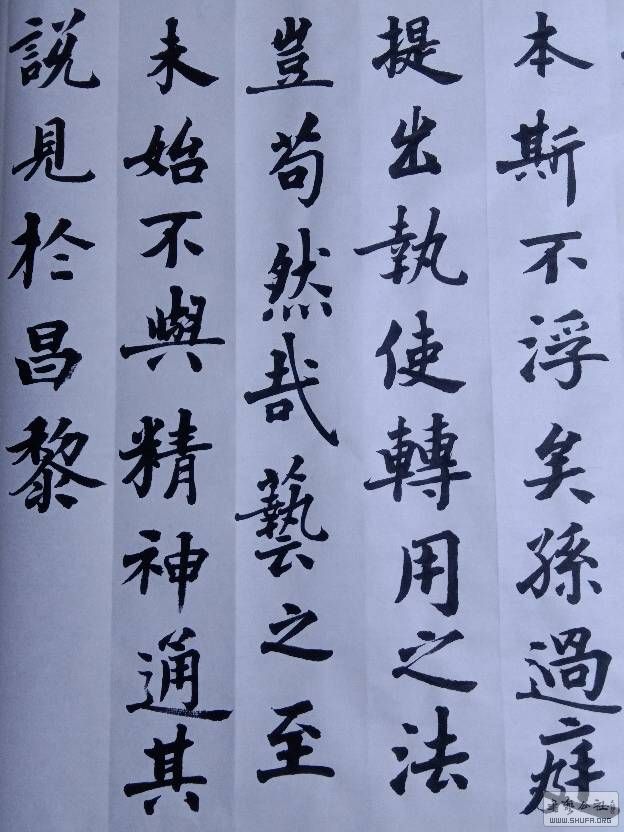 本斯不浮矣孫過庭
提出執使轉用之法
豈苟然哉藝之至
未始不與精神通其
說見於昌黎
WWW.SHUFA.ORG